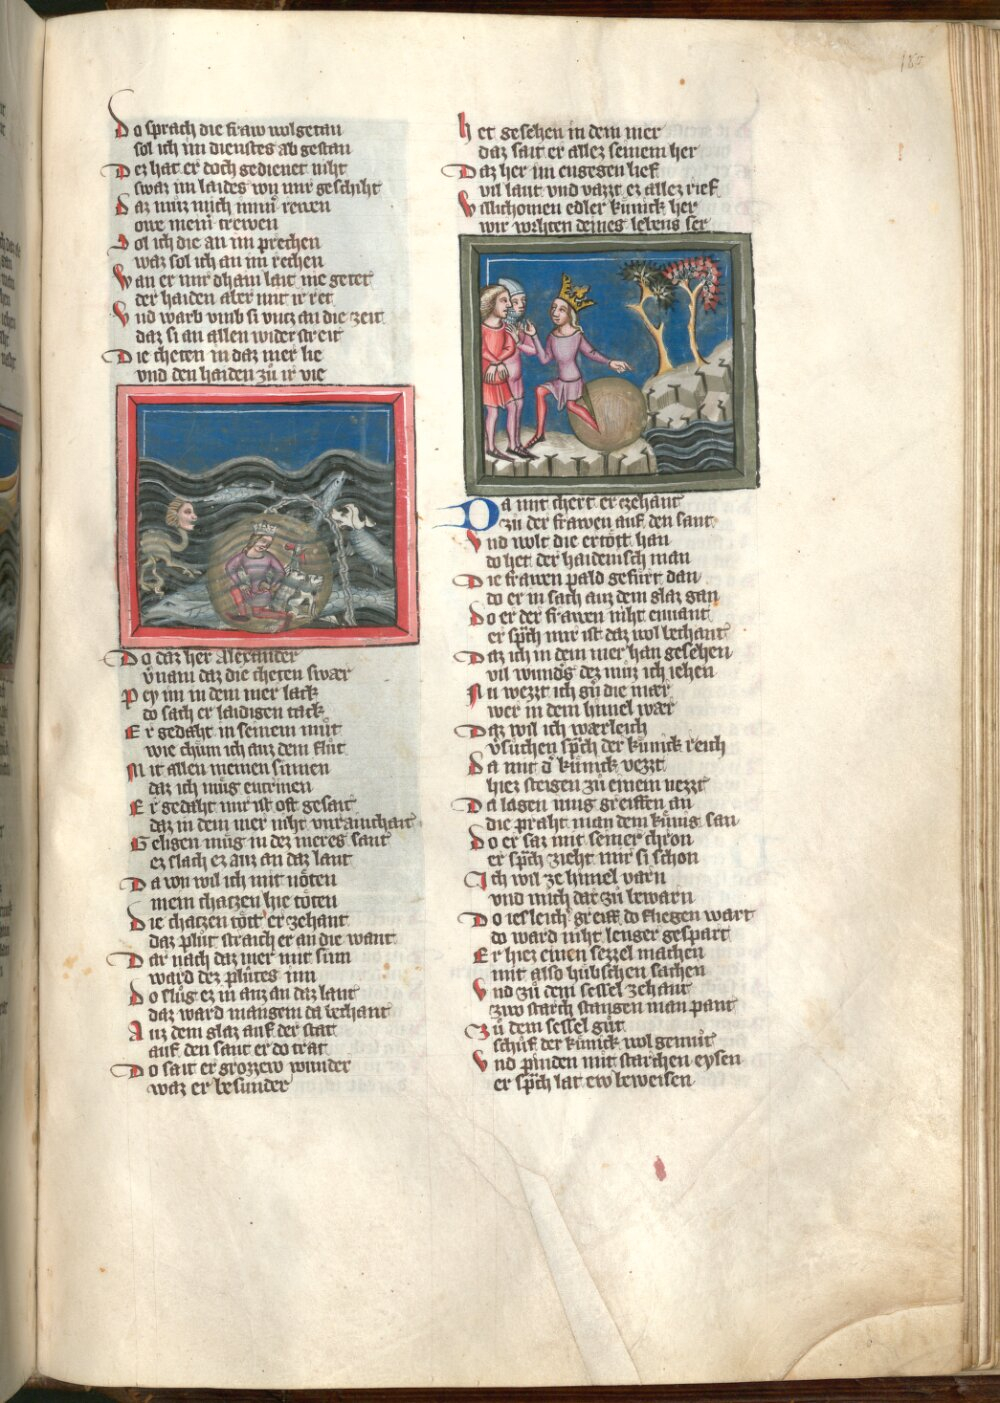 Do sprach die fraw wolgetan
sol ich im dienstes ab gestan
Dez hat er doch gedienet niht
swaz im laides von mir geschiht
Daz muz mich imm̄ rewen
owe mein trewen
Sol ich die an im prechen
waz sol ich an im rechen
Wan er mir dhain lait nie getet
der haiden aber mit ir ret
Vnd warb vmb si vntz an die zeit
daz si an allen widerstreit
Die cheten in daz mer lie
vnd den haiden zů ir vie
Do daz her Alexander
v̄nam daz die cheten swær
Pey im in dem mer lack
do sach er laidigen tack
Er gedaht in seinem můt
wie chum ich auz dem flůt
Mit allen meinen sinnen
daz ich müg entrinnen
Er gedaht mir ist oft gesait
daz in dem mer niht vnrainchait
Geligen müg in dez meres sant
ez slach ez auz an daz lant
Da von wil ich mit nöten
mein chatzen hie töten
Die chatzen tött er zehant
daz plůt straich er an die want
Dar nach daz mer mit sinn
ward dez plůtes inn
Do slůg ez in auz an daz lant
daz ward mangem da bechant
Auz dem glaz auf der stat
auf den sant er do trat
Do sait er grozzew wunder
waz er besunder
het gesehen in dem mer
daz sait er allez seinem her
Daz her im engegen lief
vil laut vnd vazt ez allez rief
Willichomen edler künick her
wir vorhten deines lebens ser
Da mit chert er zehant
zů der frawen auf den sant
Vnd wolt die ertött han
do het der haidenisch man
Die frawen pald gefürt dan
do er in sach auz dem glaz gan
Do er der frawen niht envant
er sp̄ch mir ist daz wol bechant
Daz ich in dem mer han gesehen
vil wund's dez můz ich iehen
Nu wezzt ich gn̊ die mær
wer in dem himel wær
Daz wil ich wærleich
v̄sůchen sp̄ch der künick reich
Da mit d' künick vezzt
hiez steigen zů einem nezzt
Da lagen iung greiffen an
die praht man dem künig san
Do er saz mit seiner chron
er sp̄ch zieht mir si schon
Ich wil ze himel varn
vnd mich dar zů bewarn
Do iesleich' greiff do fliegen wart
do ward niht lenger gespart
Er hiez einen sezzel machen
mit also hübschen sachen
Vnd zů dem sezzel zehant
zwo starch stangen man pant
Zů dem sezzel gůt
schůf der künick wol gemůt
Vnd pinden mit starchen eysen
er sp̄ch lat ew beweisen